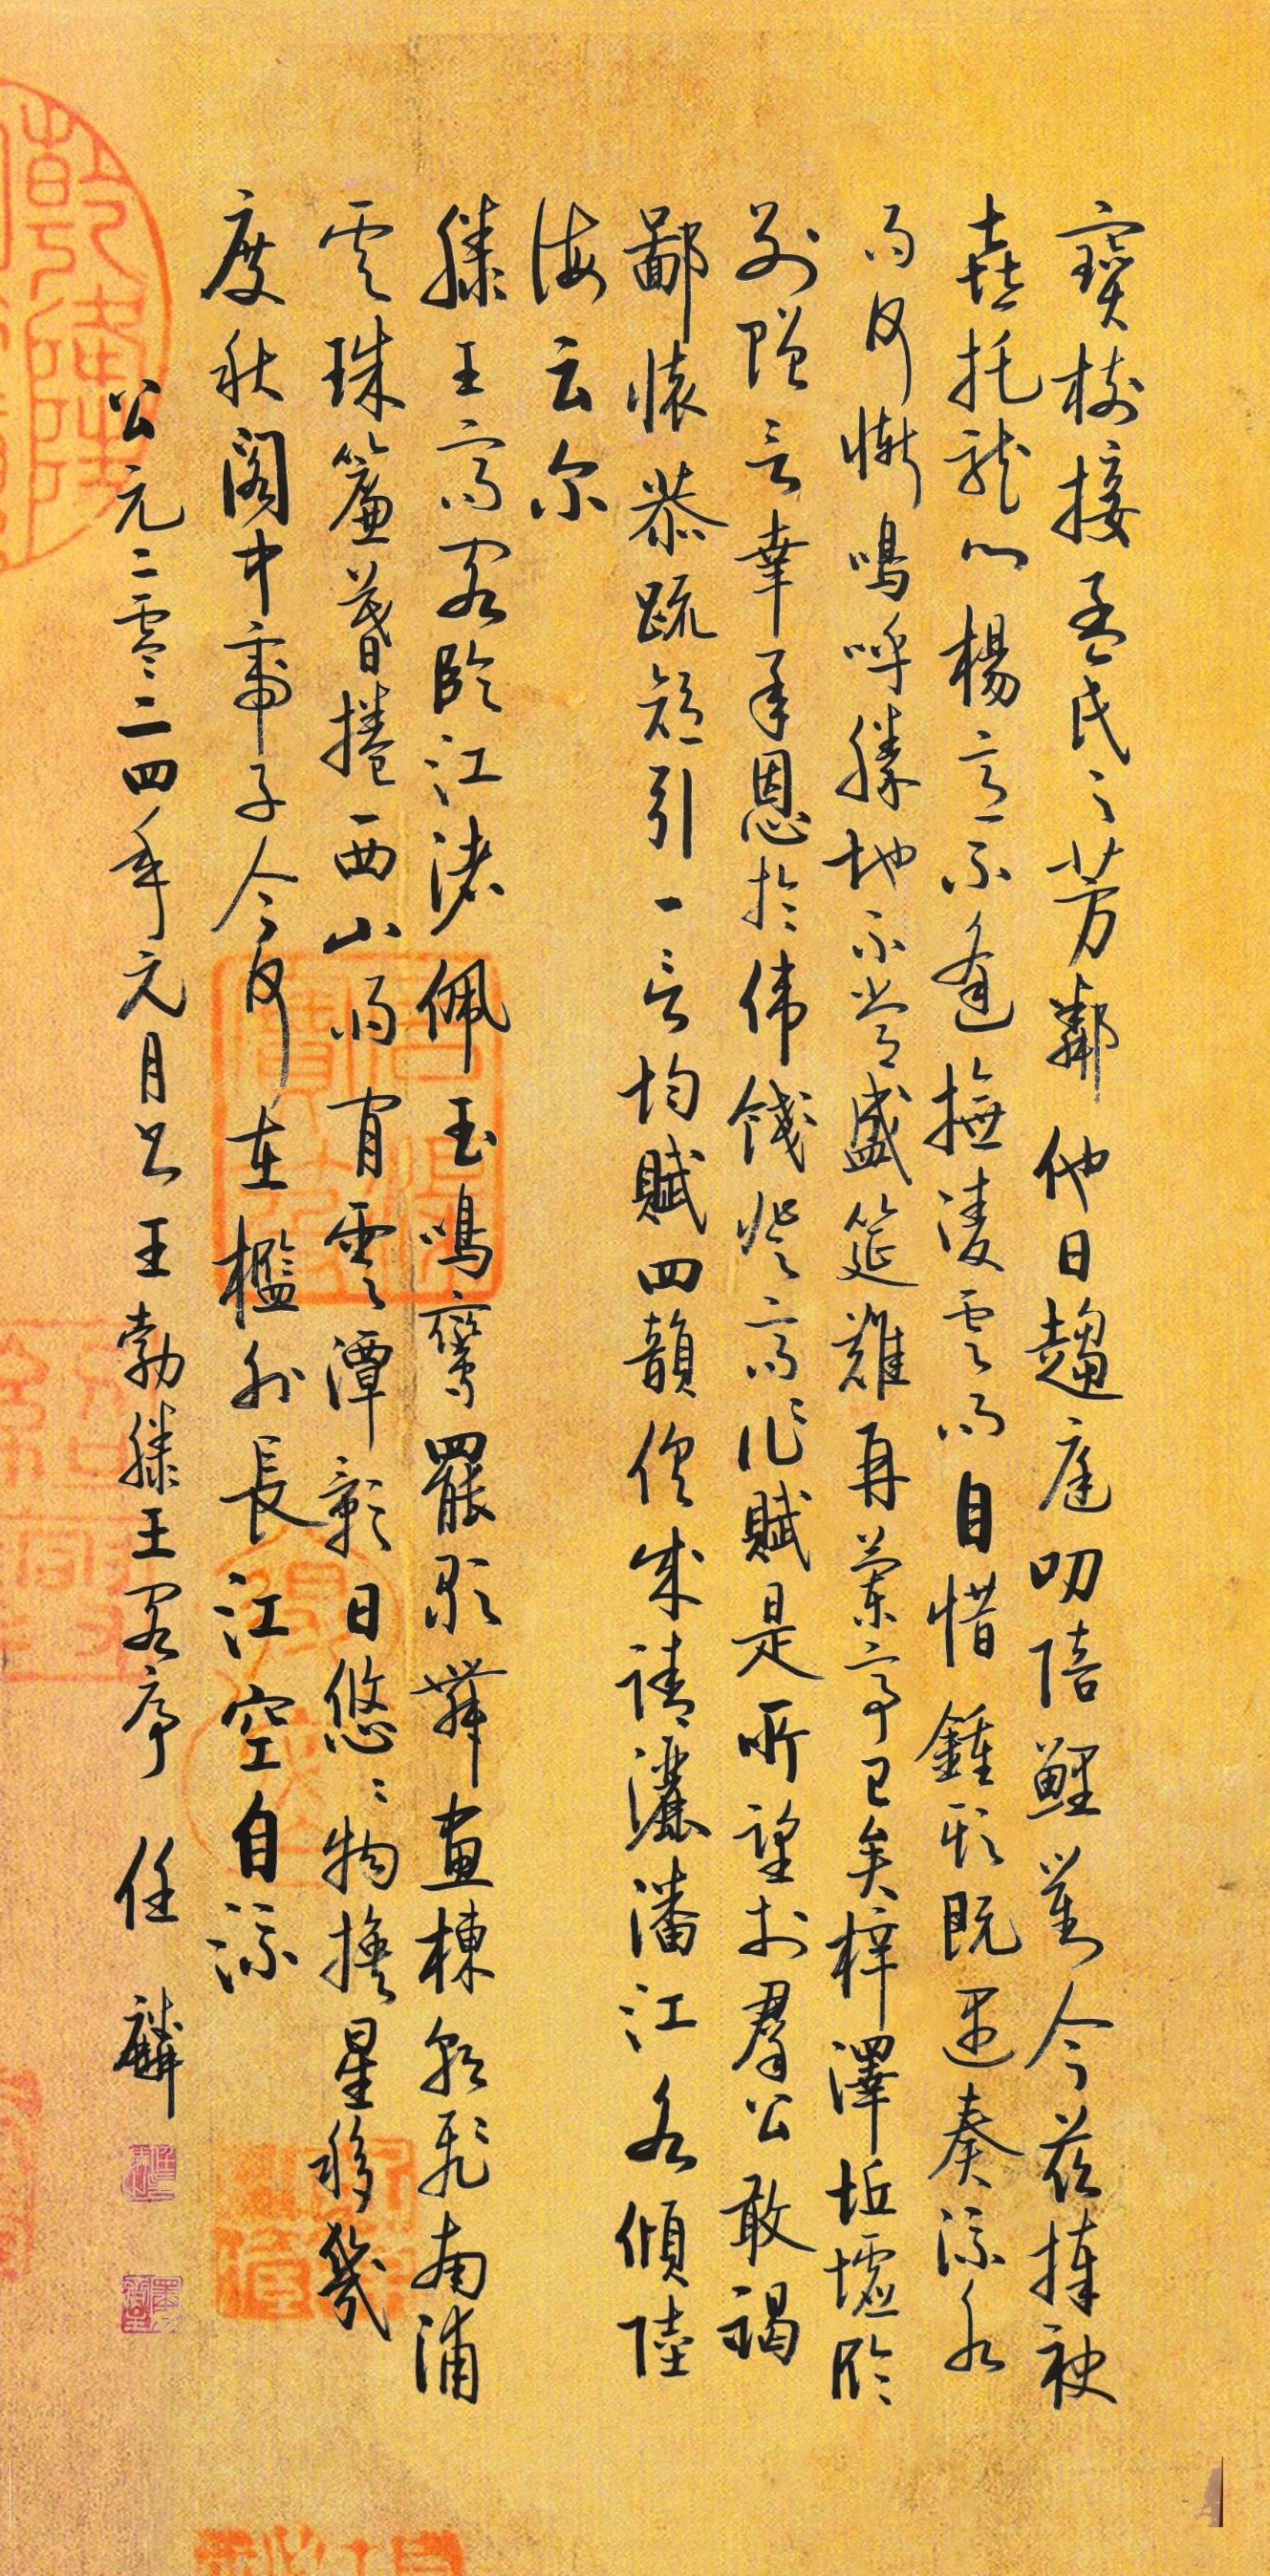 寶樹接孟氏之芳鄰他日趨庭叨陪鯉對今茲捧袂
喜托龍門楊意不逢撫凌雲而自惜鍾期既遇奏流水
而何慚嗚呼勝地不常盛筵難再蘭亭已矣梓澤坵墟臨
別贈言幸承恩於偉餞登高作賦是所望於羣公敢竭
鄙懷恭疏短引一言均賦四韻俱成請灑潘江各傾陸
海云尔
滕王高閣臨江渚佩玉鳴鸞罷歌舞畫棟朝飛南浦
雲珠簾暮捲西山雨閒雲潭影日悠〻物換星移幾
度秋閣中帝子今何在檻外長江空自流
公元二零二四年元月書王勃滕王閣序 任麟